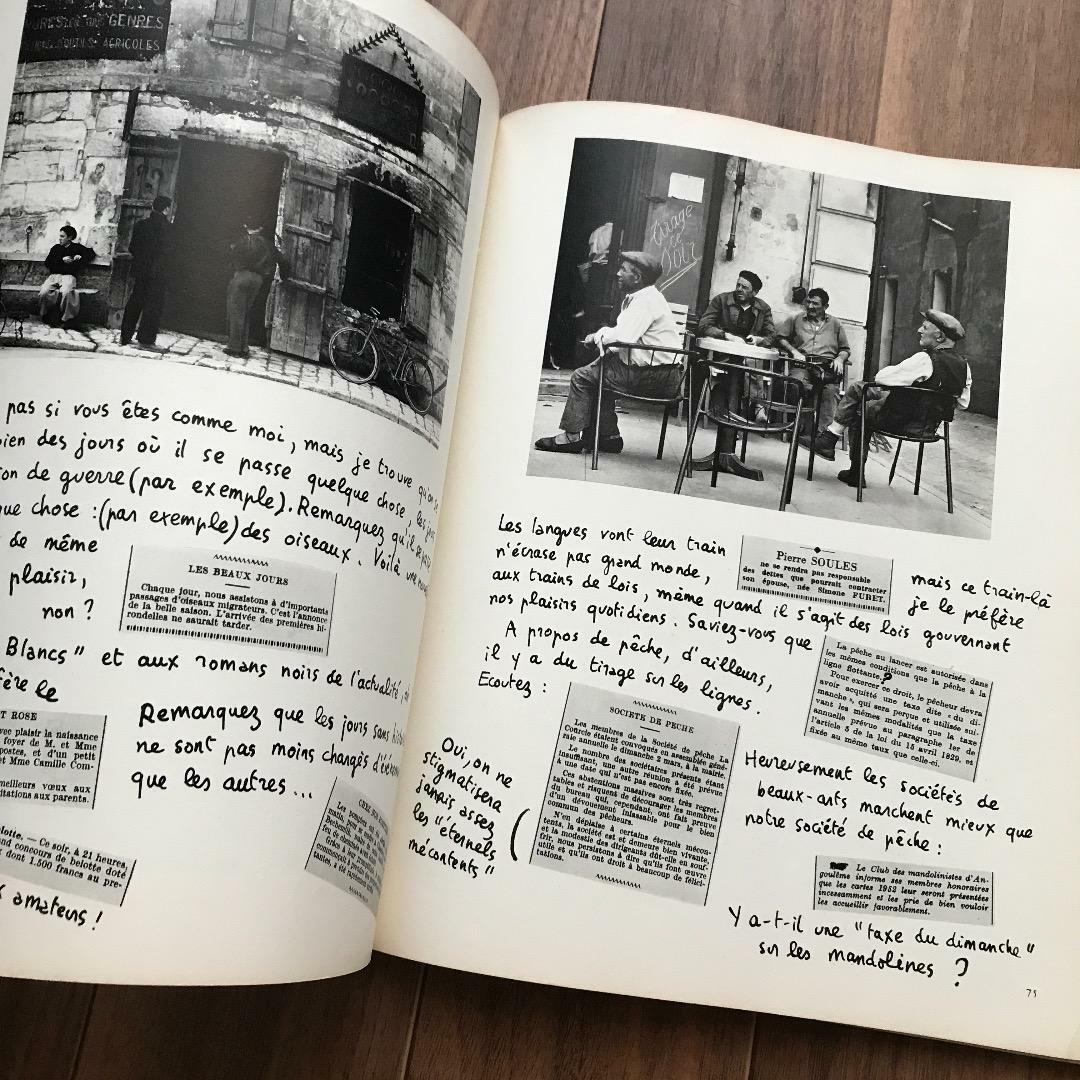 GENRES
AGRICOLES
pas si vous êtes comme moi, mais je trouve qu'on se
bien des jours où il se passe quelque chose, les jours
de guerre (par exemple). Remarquez qu'il se passe
que chose : (par exemple) des oiseaux. Voilà une
de même
plaisir,
non ?
LES BEAUX JOURS
Chaque jour, nous assistons à d'importants
passages d'oiseaux migrateurs. C'est l'annonce
de la belle saison. L'arrivée des premières hi-
rondelles ne saurait tarder.
Blancs" et aux romans noirs de l'actualité,
le
T ROSE
avec plaisir la naissance
foyer de M. et Mme
postes, et d'un petit
et Mme Camille Com-
meilleurs vœux aux
itations aux parents.
Remarquez que les jours sans
ne sont pas moins chargés
que les autres...
belotte. — Ce soir, à 21 heures,
concours de belotte doté
dont 1.500 francs au pre-
amateurs !
tirage
ce
soir
Les langues vont leur train
n'écrase pas grand monde,
Pierre SOULES
ne se rendra pas responsable
des dettes que pourrait contracter
son épouse, née Simone FURET.
mais ce train-là
je le préfère
aux trains de lois, même quand il s'agit des lois gouvernant
nos plaisirs quotidiens. Saviez-vous que
La pêche au lancer est autorisée dans
les mêmes conditions que la pêche à la
ligne flottante.?
Pour exercer ce droit, le pêcheur devra
avoir acquitté une taxe dite « du di-
manche », qui sera perçue et utilisée sui-
vant les mêmes modalités que la taxe
annuelle prévue au paragraphe 1er de
l'article 5 de la loi du 15 avril 1829, et
fixée au même taux que celle-ci.
A propos de pêche, d'ailleurs,
il y a du tirage sur les lignes.
Ecoutez :
SOCIETE DE PECHE
Les membres de la Société de pêche La
étaient convoqués en assemblée géné-
rale annuelle le dimanche 2 mars, à la mairie.
Le nombre des sociétaires présents étant
insuffisant, une autre réunion a été prévue
à une date qui n'est pas encore fixée.
Ces abstentions massives sont très regret-
tables et risquent de décourager les membres
du bureau qui, cependant, ont fait preuve
d'un dévouement inlassable pour le bien
commun des pêcheurs.
N'en déplaise à certains éternels mécon-
tents, la société est et demeure bien vivante,
et la modestie des dirigeants dût-elle en souf-
frir, nous persistons à dire qu'ils font œuvre
utile et qu'ils ont droit à beaucoup de félici-
tations.
Oui, on ne
stigmatisera
jamais assez
les "éternels
mécontents"
Heureusement les sociétés de
beaux-arts marchent mieux que
notre société de pêche :
Le Club des mandolinistes d'An-
goulême informe ses membres honoraires
que les cartes 1952 leur seront présentées
incessamment et les prie de bien vouloir
les accueillir favorablement.
Y a-t-il une "taxe du dimanche"
sur les mandolines ?
75